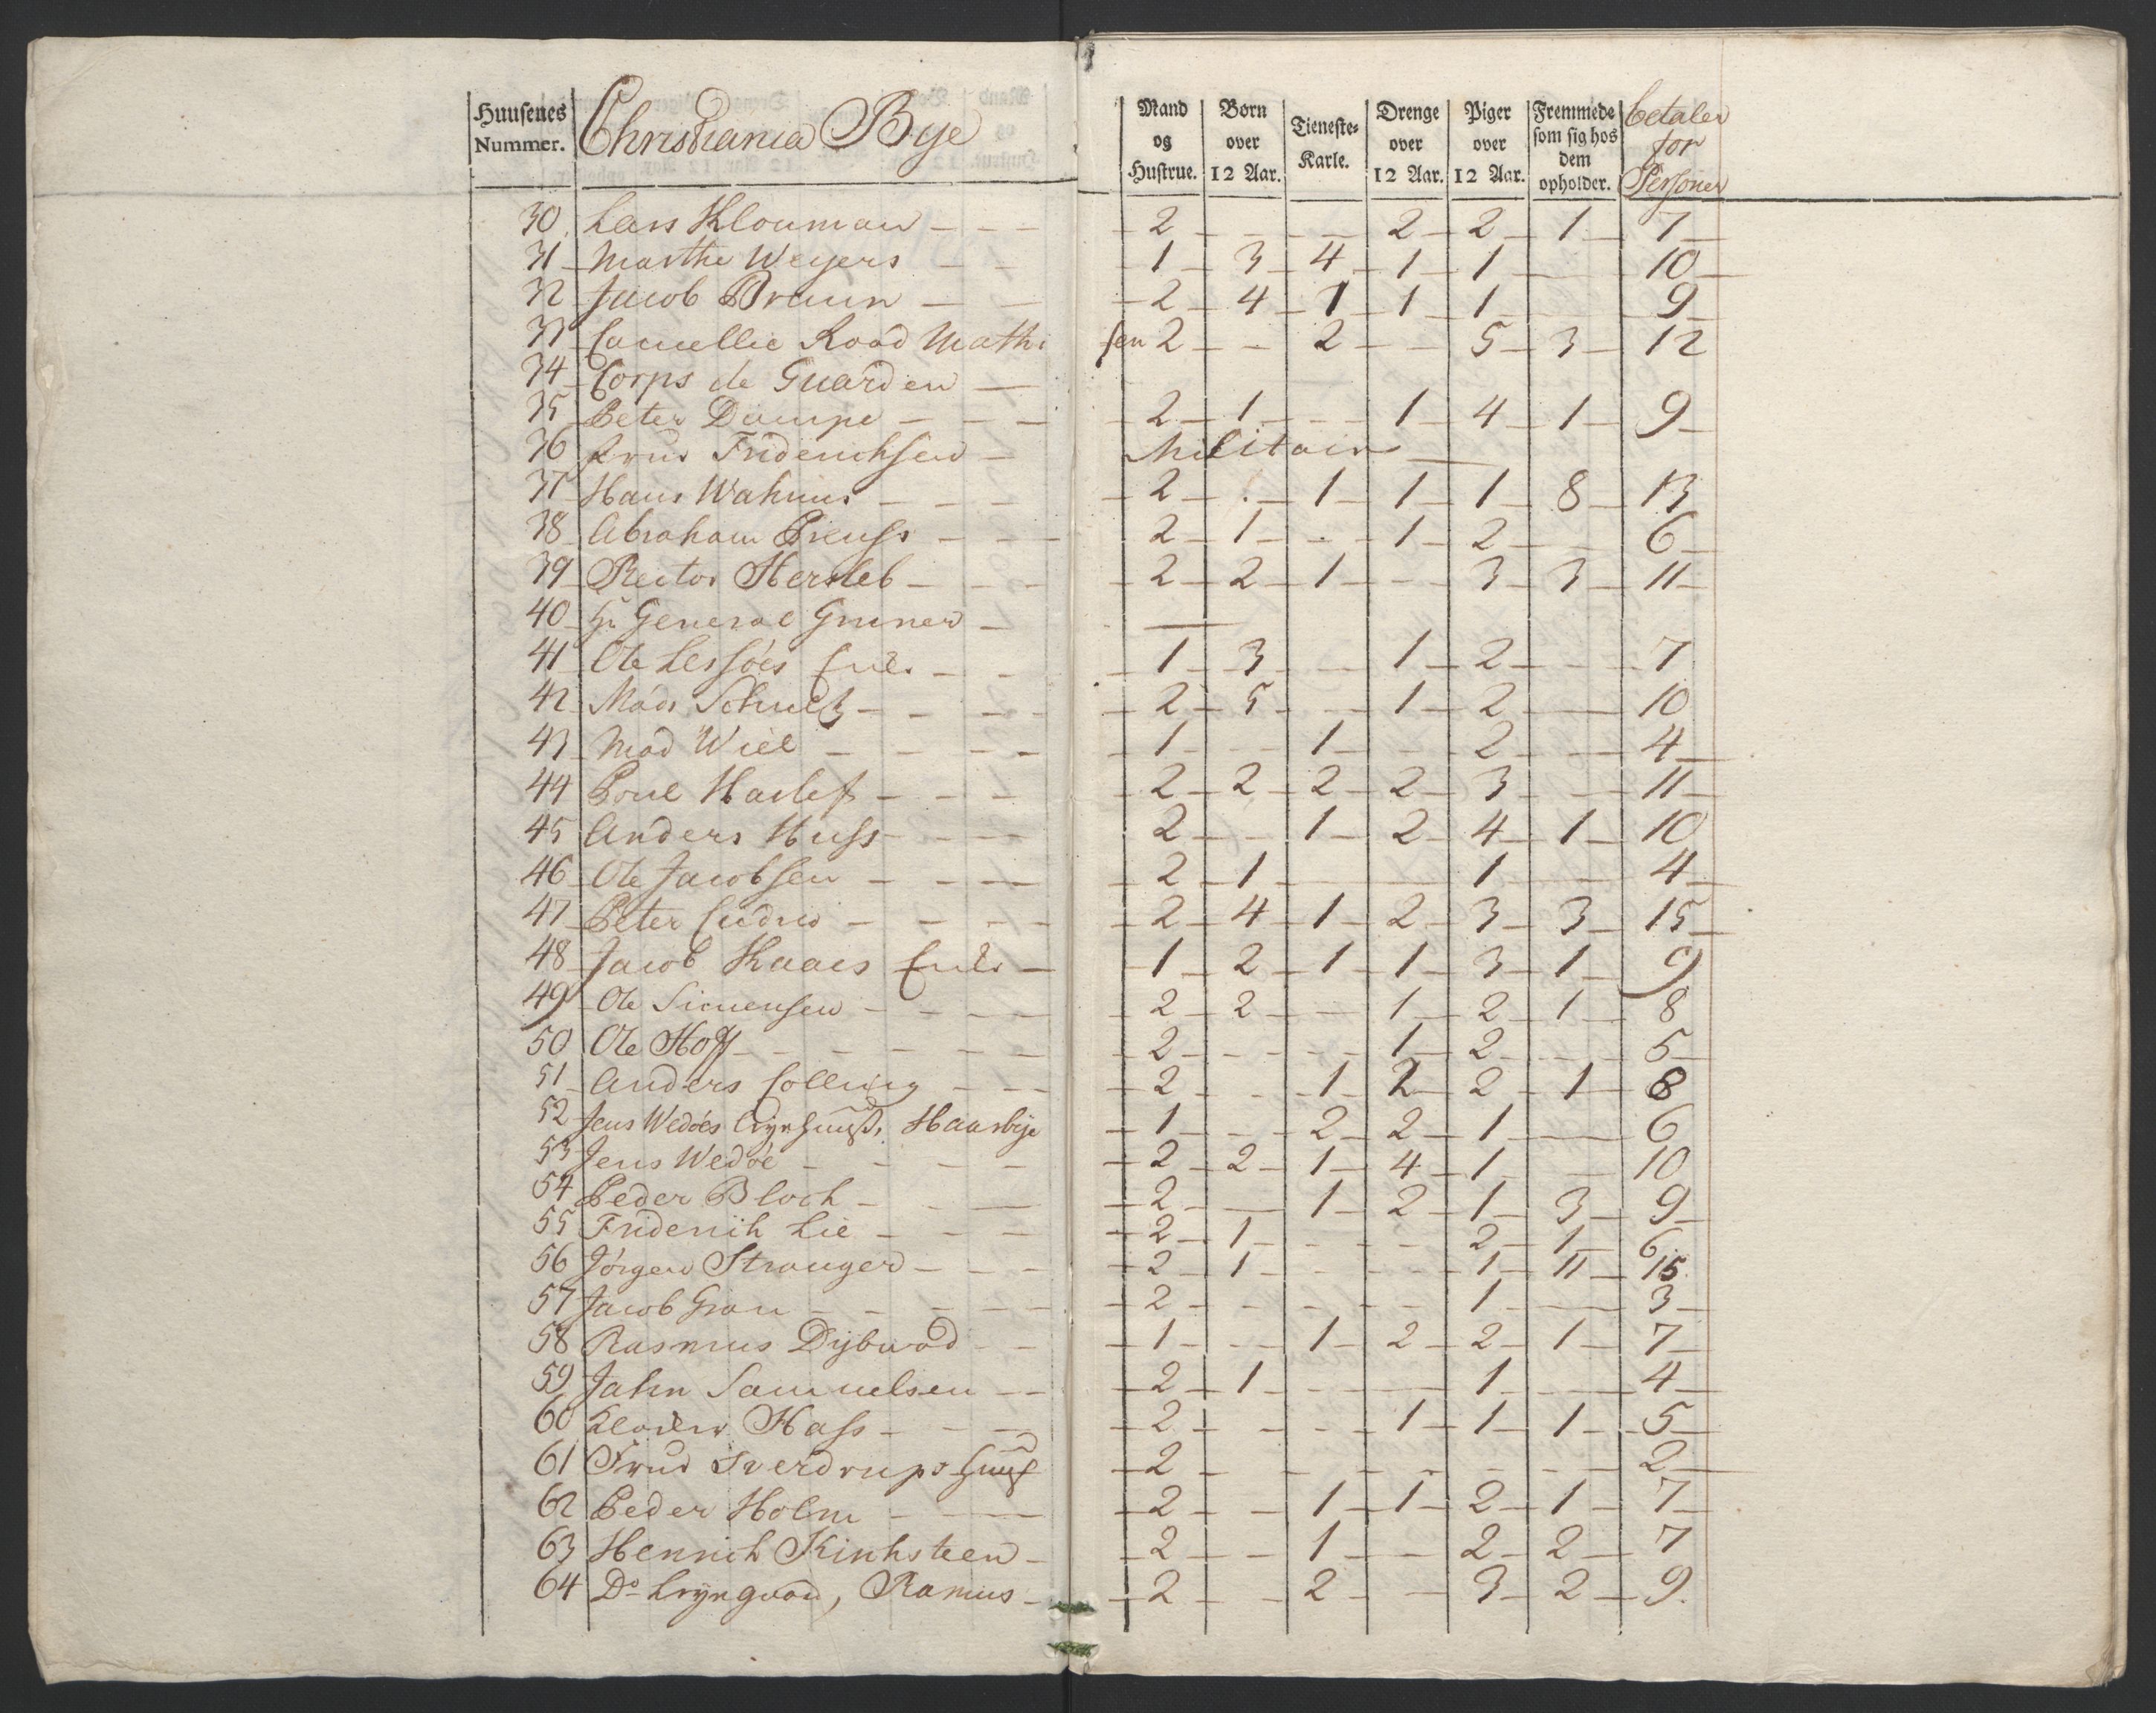 Huusenes Nummer. Christiania Bye Mand og Hustrue. Børn over 12 Aar. Tieneste-Karle. Drenge over 12 Aar. Piger over 12 Aar. Fremmede som sig hos dem opholder. betaler for Personer
30 Lars Klouman - - - 2 - - 2 2 1 7
31 Marthe Weyers - - 1 3 4 1 1 - 10
32 Jacob Bruun - - 2 4 1 1 1 9
33 Cancellie Raad Mathisen 2 - 2 - 5 3 12
34 Corps de Guarden -
35 Peter Dampe - - - 2 1 - 1 4 1 9
36 Friderichsen - Militair
37 Hans - - - 2 - 1 1 1 8 13
38 Abraham Preuss - - - 2 1 - 1 2 - 6
39 Rector Hersleb - - - 2 2 1 - 3 3 11
40 Hr General Gruner - -
41 Ole Lessøes Enke - - 1 3 - 1 2 - 7
42 Mads Schultz - - - - 2 5 - 1 2 - 10
43 Mad Wiel - - - - 1 - 1 - 2 - 4
44 Poul - - - 2 2 2 2 3 - 11
45 Anders Huss - - - 2 - 1 2 4 1 10
46 Ole Jacobsen - - - 2 1 - - 1 - 4
47 Peter - - - - 2 4 1 2 3 3 15
48 Jacob Kaaes Enke - 1 2 1 1 3 1 9
49 Ole Simensen - - - - 2 2 - 1 2 1 8
50 Ole Hoff - - - - - - 2 - - 1 2 - 5
51 Anders Colling - - - 2 - 1 2 2 1 8
52 Jens Wedøes Haarbye 1 - 2 2 1 - 6
53 Jens Wedøe - - - - 2 2 1 4 1 - 10
54 Peder Bloch - - - 2 - 1 2 1 3 9
55 Friderich Lie - - - 2 1 - - 2 1 6
56 Jørgen Stranger - - - 2 1 - - 1 11 15
57 Jacob Gran - - - - - 2 - - - 1 - 3
58 Rasmus Dybwad - - 1 - 1 2 2 1 7
59 Jahn Samuelsen - - 2 1 - - 1 - 4
60 Hass - - - 2 - - 1 1 1 5
61 Frue Sverdrups Huus 2 - - - - - 2
62 Peder Holm - - - 2 - 1 1 2 1 7
63 Henrich Kinksteen - 2 - 1 - 2 2 7
64 Do Ramus - 2 - 2 - 3 2 9.